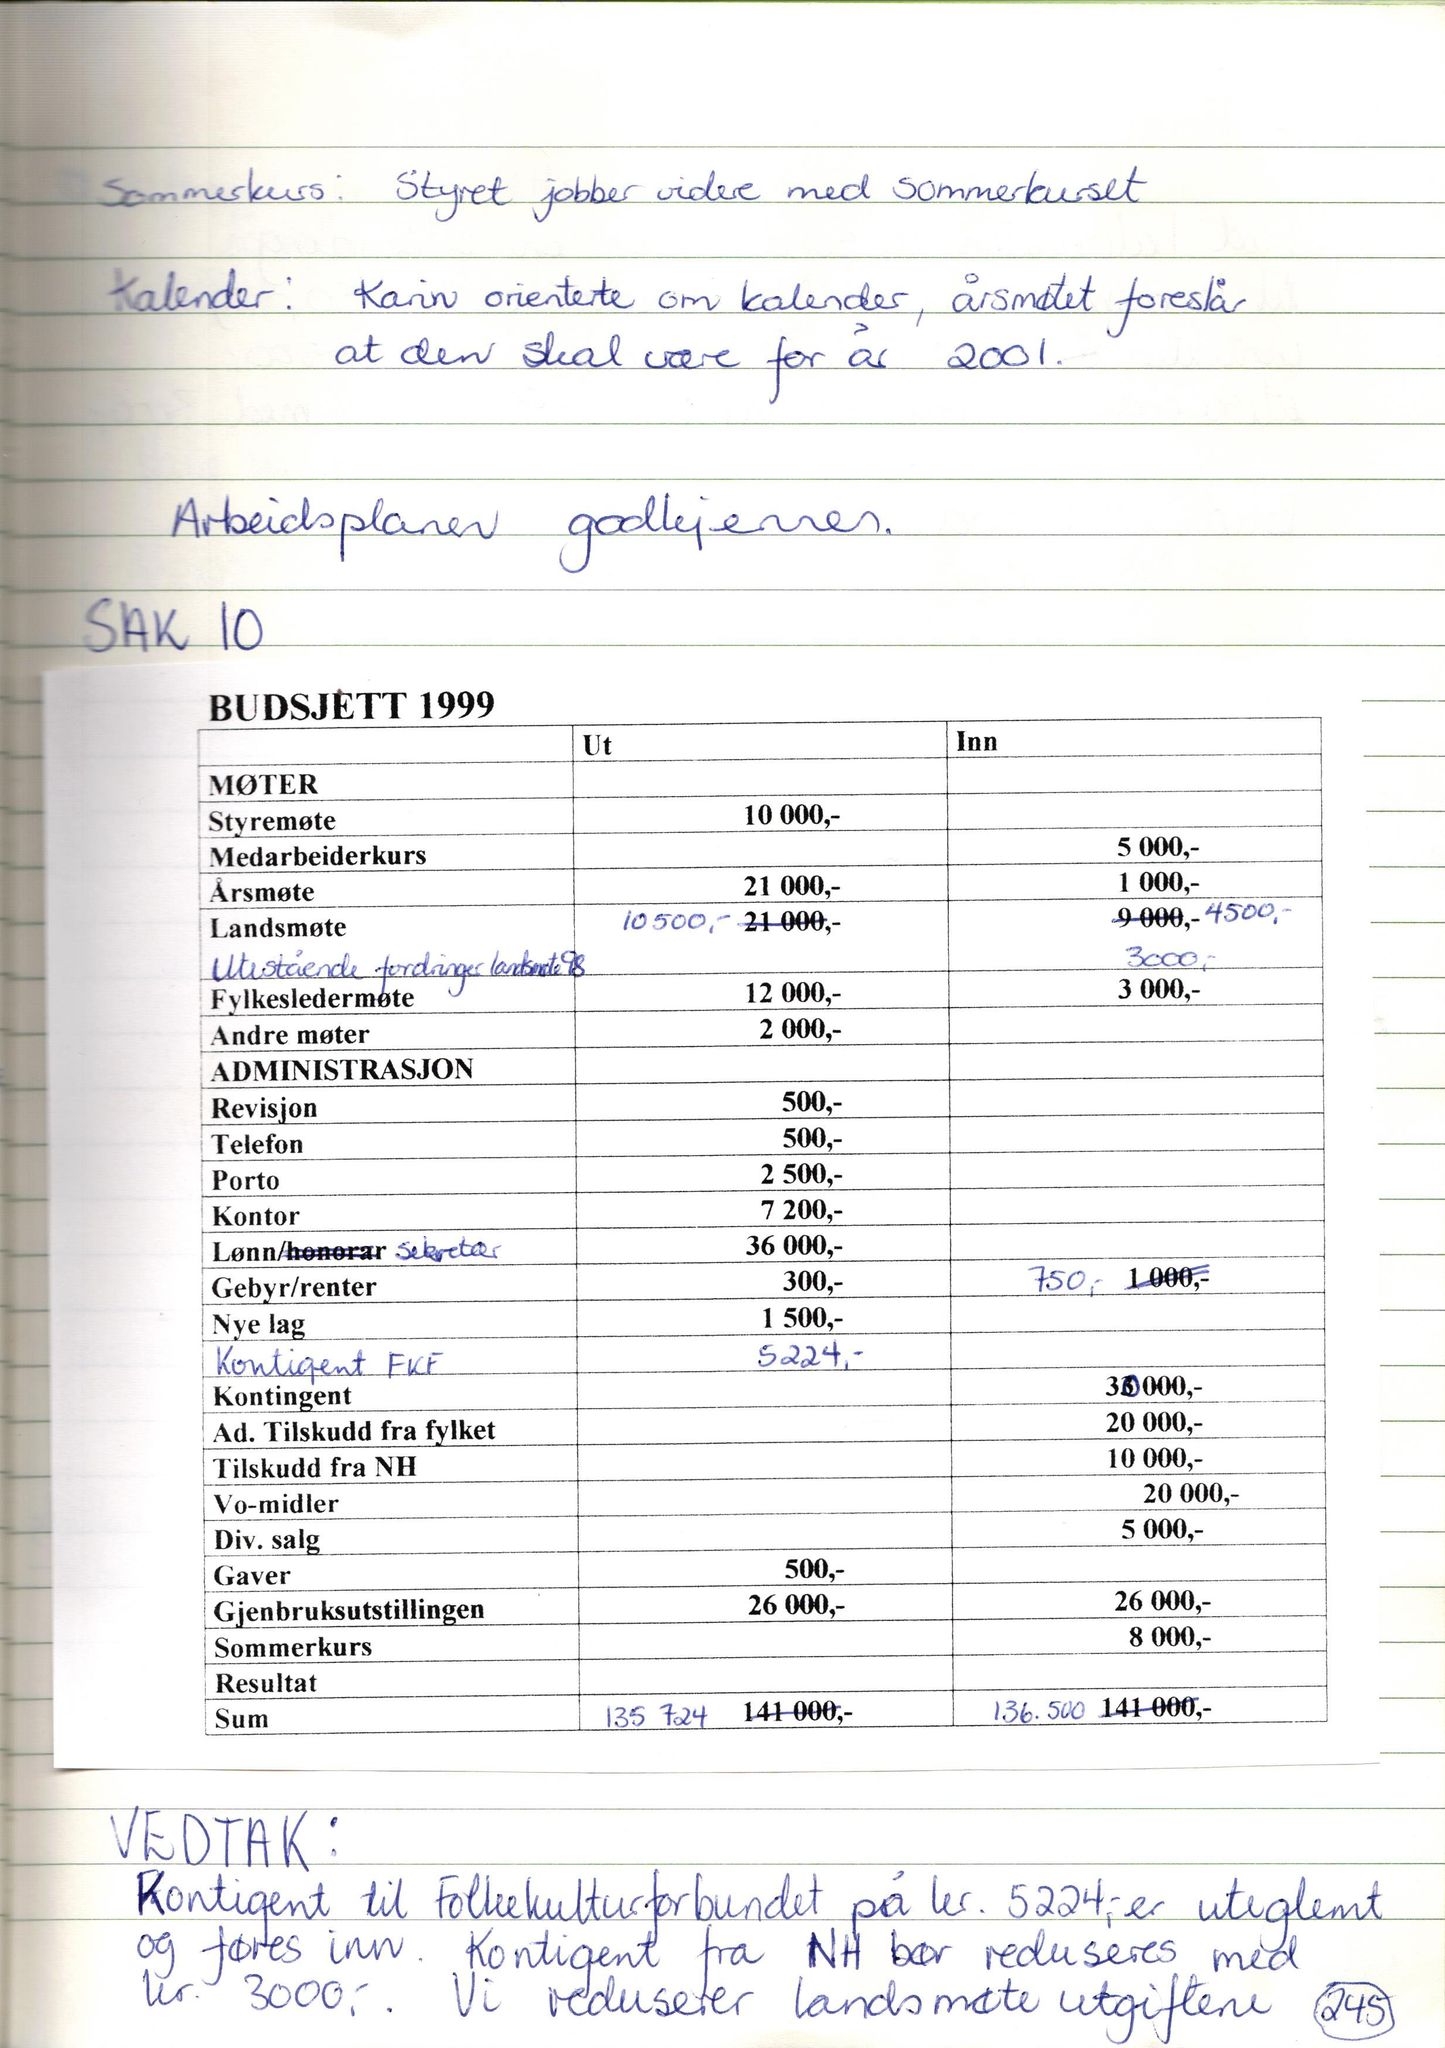 Sommerkurs: Styret jobber videre med sommerkurset
Kalender: Karin orienterte om kalender, årsmøtet foreslår
at den skal være for år 2001.
Arbeidsplanen godkjennes.
SAK 10
BUDSJETT 1999
Ut Inn
MØTER
Styremøte 10 000,-
Medarbeiderkurs 5 000,-
Årsmøte 21 000,- 1 000,-
Landsmøte 10500,- 21 000,- 9 000,- 4500,-
Utestående fordringer landsmøte 98 3000,-
Fylkesledermøte 12 000,- 3 000,-
Andre møter 2 000,-
ADMINISTRASJON
Revisjon 500,-
Telefon 500,-
Porto 2 500,-
Kontor 7 200,-
Lønn/honorar sekretær 36 000,-
Gebyr/renter 300,- 750,- 1 000,-
Nye lag 1 500,-
Kontigent FKF 5224,-
Kontingent 30 000,-
Ad. Tilskudd fra fylket 20 000,-
Tilskudd fra NH 10 000,-
Vo-midler 20 000,-
Div. salg 5 000,-
Gaver 500,-
Gjenbruksutstillingen 26 000,- 26 000,-
Sommerkurs 8 000,-
Resultat
Sum 135 724 141 000,- 136.500 141 000,-
VEDTAK:
Kontigent til Folkekulturforbundet på kr. 5224,- er uteglemt
og føres inn. Kontigent fra NH bør reduseres med
kr. 3000,-. Vi reduserer landsmøte utgiftene
245